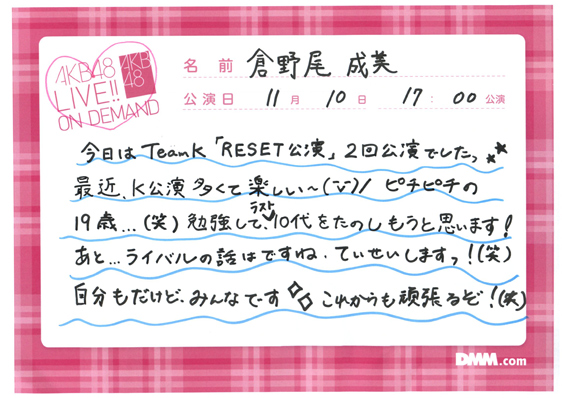 AKB48
LIVE!!
ON DEMAND
AKB
48
名前 倉野尾 成美
公演日 11月 10日 17:00公演
今日はTeamK「RESET公演」2回公演でしたっ
最近、K公演多くて楽しい〜(˘ᵕ˘)/ ピチピチの
19歳…(笑) 勉強して、ラスト10代をたのしもうと思います!
あと…ライバルの話はですね、ていせいしますっ!(笑)
自分もだけど、みんなです これからも頑張るぞ!(笑)
DMM.com